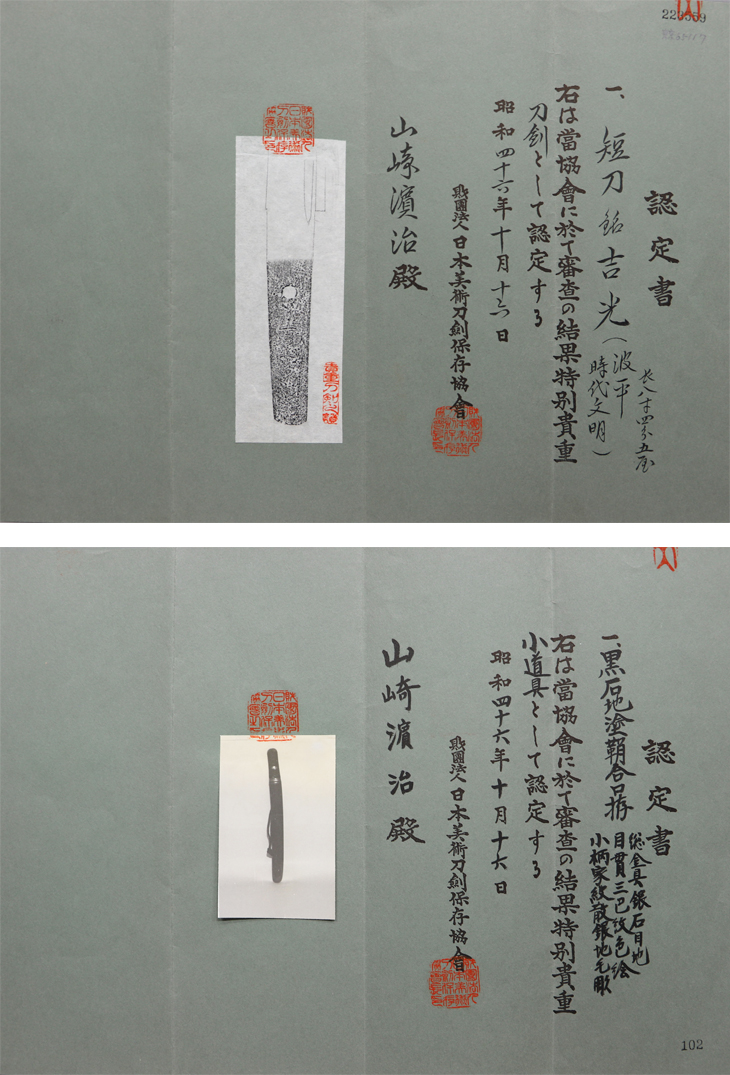 認定書
一、短刀 銘 吉光(波平 時代文明)
長八寸四分五厘
右は當協會に於て審査の結果特別貴重
刀剣として認定する
昭和四十六年十月十六日
財團法人日本美術刀劍保存協會
山崎濱治殿
認定書
一、黒石地塗鞘合口拵
総金具銀石目地
目貫三巴紋色絵
小柄家紋散銀地毛彫
右は當協會に於て審査の結果特別貴重
小道具として認定する
昭和四十六年十月十六日
財團法人日本美術刀劍保存協會
山崎濱治殿
102